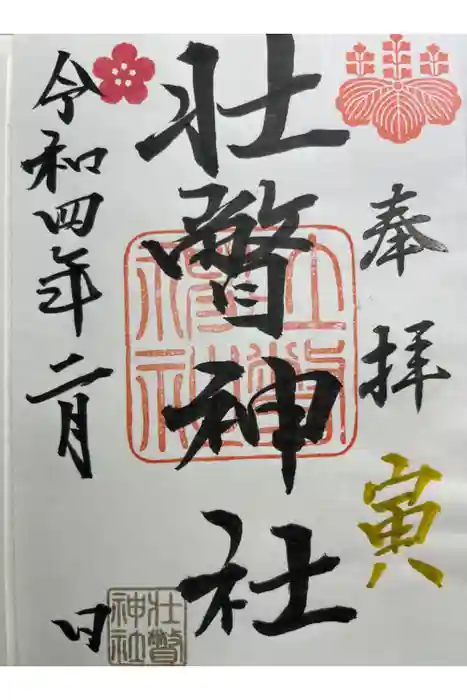 奉拝
寅
壮瞥神社
壮瞥
神社
令和四年二月 日
壮瞥
神社